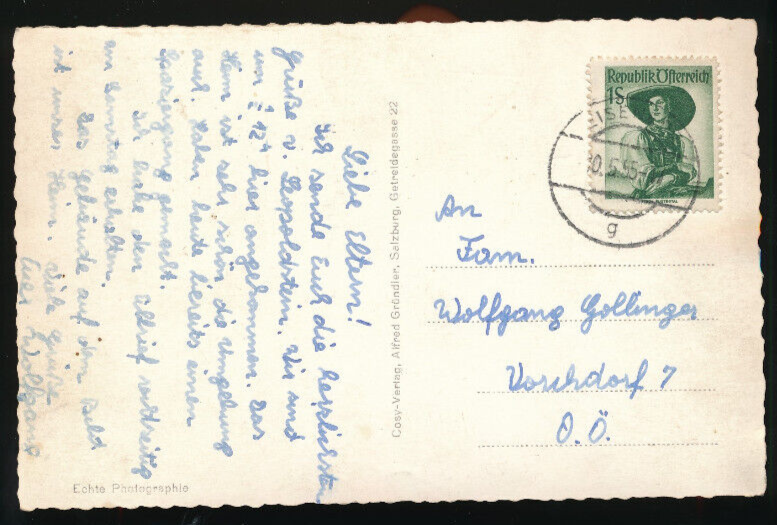 Liebe Eltern!
Ich sende Euch die herzlichsten
Grüße v. Leopoldstein. Wir sind
um ½ 12h hier angekommen. Das
Heim ist sehr schön die Umgebung
auch. Haben heute bereits einen
Spaziergang gemacht.
Ich habe den rechtzeitig
am Samstag erhalten.
Das Gebäude auf dem Bild
ist unser Heim. Viele Grüße
Euer Wolfgang
Echte Photographie
Cosy-Verlag, Alfred Gründler, Salzburg, Getreidegasse 22
Republik Österreich
1S
EISE
0.5.55
g
An
Fam.
Wolfgang Gollinger
Vorchdorf 7
O.Ö.